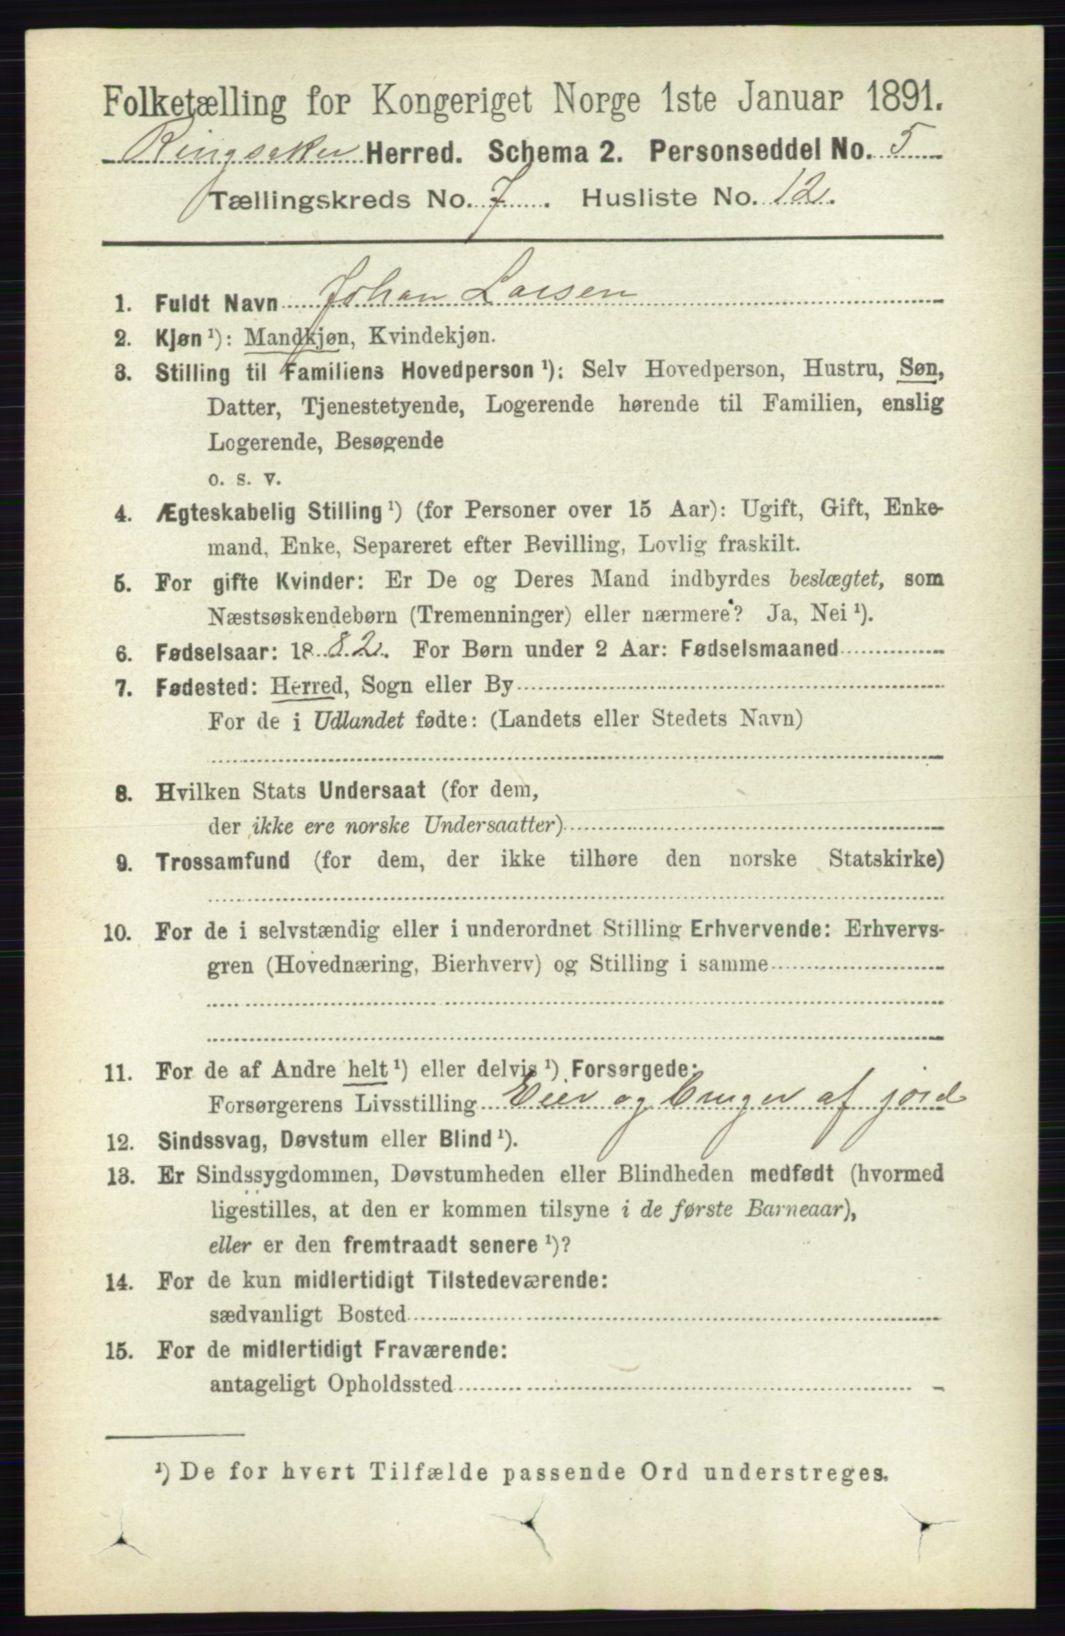 Folketælling for Kongeriget Norge 1ste Januar 1891.
Ringsaker Herred. Schema 2. Personseddel No. 5
Tællingskreds No. 7. Husliste No. 12.
1. Fuldt Navn Johan Larsen
2. Kjøn ¹): Mandkjøn, Kvindekjøn.
3. Stilling til Familiens Hovedperson ¹): Selv Hovedperson, Hustru, Søn,
Datter, Tjenestetyende, Logerende hørende til Familien, enslig
Logerende, Besøgende
o. s. v.
4. Ægteskabelig Stilling ¹) (for Personer over 15 Aar): Ugift, Gift, Enke-
mand, Enke, Separeret efter Bevilling, Lovlig fraskilt.
5. For gifte Kvinder: Er De og Deres Mand indbyrdes beslægtet, som
Næstsøskendebørn (Tremenninger) eller nærmere? Ja, Nei ¹).
6. Fødselsaar: 1882. For Børn under 2 Aar: Fødselsmaaned
7. Fødested: Herred, Sogn eller By
For de i Udlandet fødte: (Landets eller Stedets Navn)
8. Hvilken Stats Undersaat (for dem,
der ikke ere norske Undersaatter)
9. Trossamfund (for dem, der ikke tilhøre den norske Statskirke)
10. For de i selvstændig eller i underordnet Stilling Erhvervende: Erhvervs-
gren (Hovednæring, Bierhverv) og Stilling i samme
11. For de af Andre helt ¹) eller delvis ¹) Forsørgede:
Forsørgerens Livsstilling Eier og bruger af jord
12. Sindssvag, Døvstum eller Blind ¹).
13. Er Sindssygdommen, Døvstumheden eller Blindheden medfødt (hvormed
ligestilles, at den er kommen tilsyne i de første Barneaar),
eller er den fremtraadt senere ¹)?
14. For de kun midlertidigt Tilstedeværende:
sædvanligt Bosted
15. For de midlertidigt Fraværende:
antageligt Opholdssted
¹) De for hvert Tilfælde passende Ord understreges.